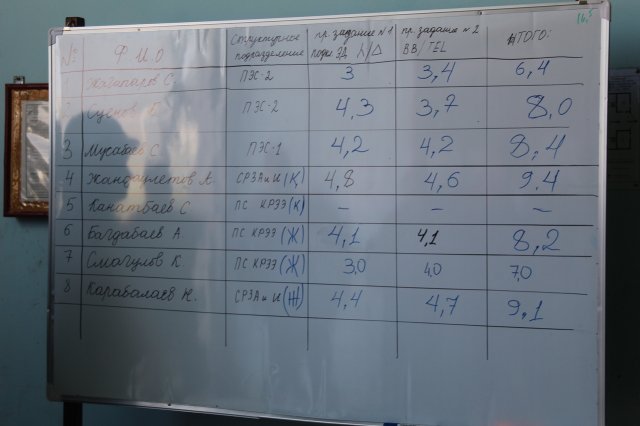 16,5
№ Ф И О Структурное подразделение пр. задание №1 λ/Δ пр. задание №2 ВВ/TEL ИТОГО:
С. ПЭС-2 3 3,4 6,4
2 ПЭС-2 4,3 3,7 8,0
3 Мусабаев С ПЭС-1 4,2 4,2 8,4
4 Жандаулетов А. СРЗАиИ (К) 4,8 4,6 9.4
5 Канатбаев С ПС КРЭЭ (К) – – –
6 Багдабаев А ПС КРЭЭ (Ж) 4,1 4,1 8,2
7 Смагулов К ПС КРЭЭ (Ж) 3,0 4,0 7,0
8 Карабалаев К. СРЗАиИ (Ж) 4,4 4,7 9,1